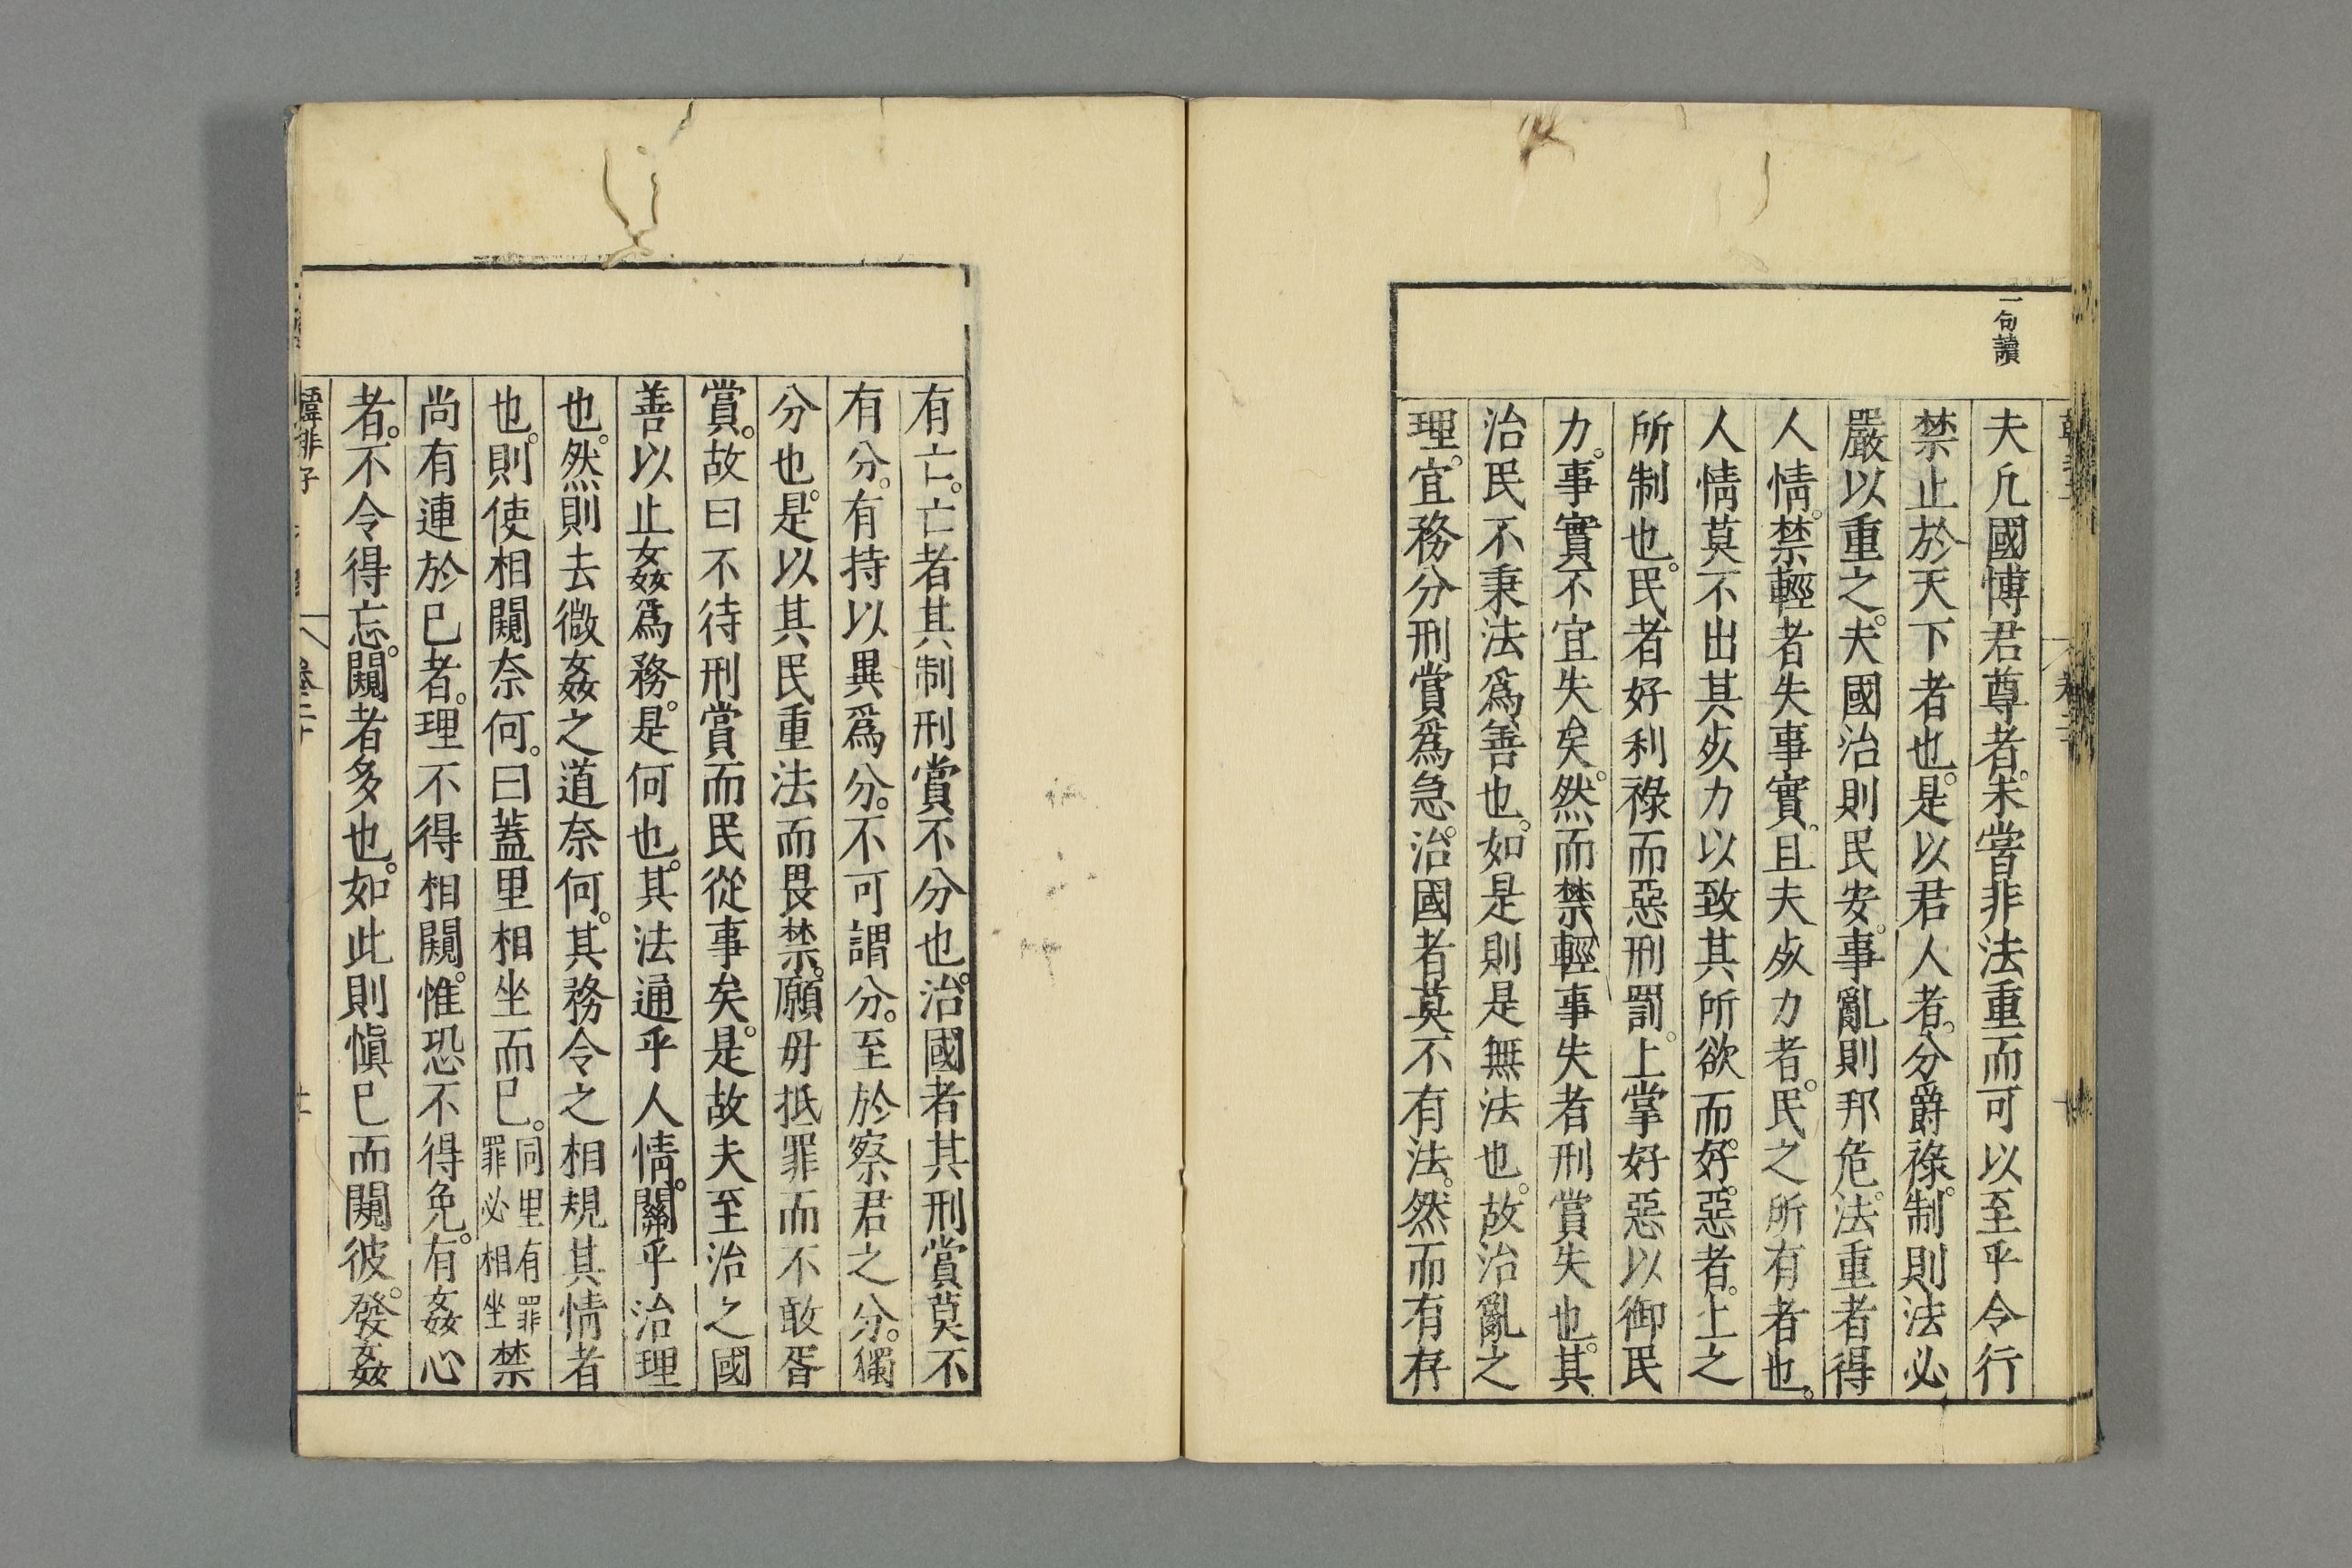 一句讀
夫凢國慱君尊者。未嘗非法重而可以至乎令行
禁止於天下者也。是以君人者。分爵祿。制則法必
嚴以重之。夫國治則民安。事亂則邦危。法重者得
人情。禁輕者失事實。且夫死力者。民之所有者也。
人情莫不出其死力以致其所欲而好。惡者。上之
所制也。民者好利祿而惡刑罰。上掌好惡以御民
力。事實不宜失矣。然而禁輕事失者刑賞失也。其
治民不秉法爲善也。如是則是無法也。故治亂之
理。宜務分刑賞爲急。治國者莫不有法。然而有存
有亡。亡者其制刑賞不分也。治國者其刑賞莫不
有分。有持以異爲分。不可謂分。至於察君之分。獨
分也。是以其民重法而畏禁。願毋抵罪而不敢胥
賞。故曰不待刑賞而民從事矣。是故夫至治之國
善以止姦爲務。是何也。其法通乎人情。關乎治理
也。然則去微姦之道奈何。其務令之相規其情者
也。則使相闚奈何。曰蓋里相坐而已。同里有罪罪必相坐禁
尚有連於已者。理不得相闚。惟恐不得免。有姦心
者。不令得忘。闚者多也。如此則慎已而闚彼。發姦
韓非子 卷二十